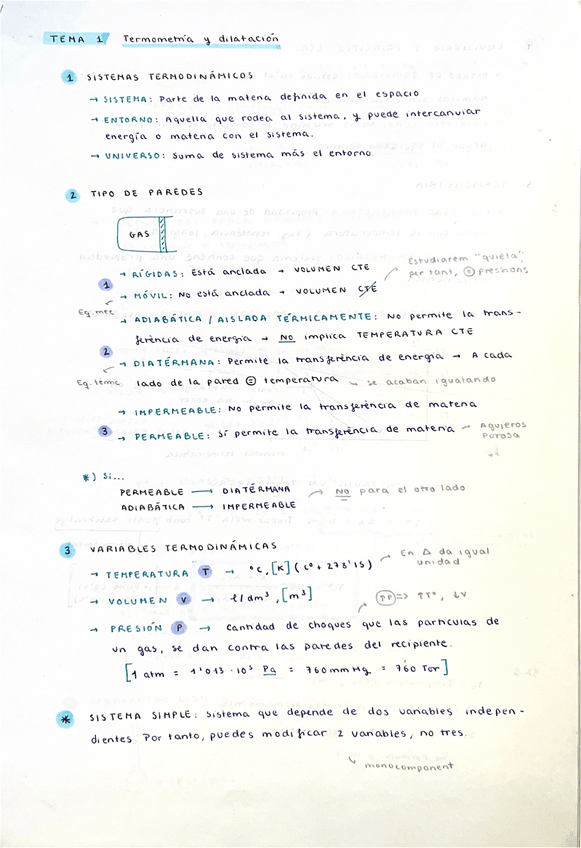 TEMA 1 Termometría y dilatación
1 SISTEMAS TERMODINÁMICOS
→ SISTEMA: Parte de la materia definida en el espacio
→ ENTORNO: Aquella que rodea al sistema, y puede intercanviar
energía o materia con el sistema.
→ UNIVERSO: Suma de sistema más el entorno
2 TIPO DE PAREDES
GAS
→ RÍGIDAS: Está anclada → VOLUMEN CTE
Estudiarem "quieta",
per tant, = pressions
1
→ MÓVIL: No está anclada → VOLUMEN CTE
Eq. mec
→ ADIABÁTICA / AISLADA TÉRMICAMENTE: No permite la trans-
ferència de energía → NO implica TEMPERATURA CTE
2
→ DIATÉRMANA: Permite la transferència de energía → A cada
Eq. tèrmic
lado de la pared = temperatura → se acaban igualando
→ IMPERMEABLE: No permite la transferència de materia
3
→ PERMEABLE: Sí permite la transferència de materia → Agujeros
Porosa
*) Si...
PERMEABLE → DIATÉRMANA
ADIABÁTICA → IMPERMEABLE
NO para el otro lado
3 VARIABLES TERMODINÁMICAS
En Δ da igual
unidad
→ TEMPERATURA T → °C, [K] (C° + 273'15)
→ VOLUMEN V → l/dm³, [m³]
↑P => ↑T°, ↓V
→ PRESIÓN P → Cantidad de choques que las partículas de
un gas, se dan contra las paredes del recipiente.
[1 atm = 1'013 · 10⁵ Pa = 760 mm Hg = 760 Tor]
* SISTEMA SIMPLE: Sistema que depende de dos variables indepen-
dientes. Por tanto, puedes modificar 2 variables, no tres.
monocomponent